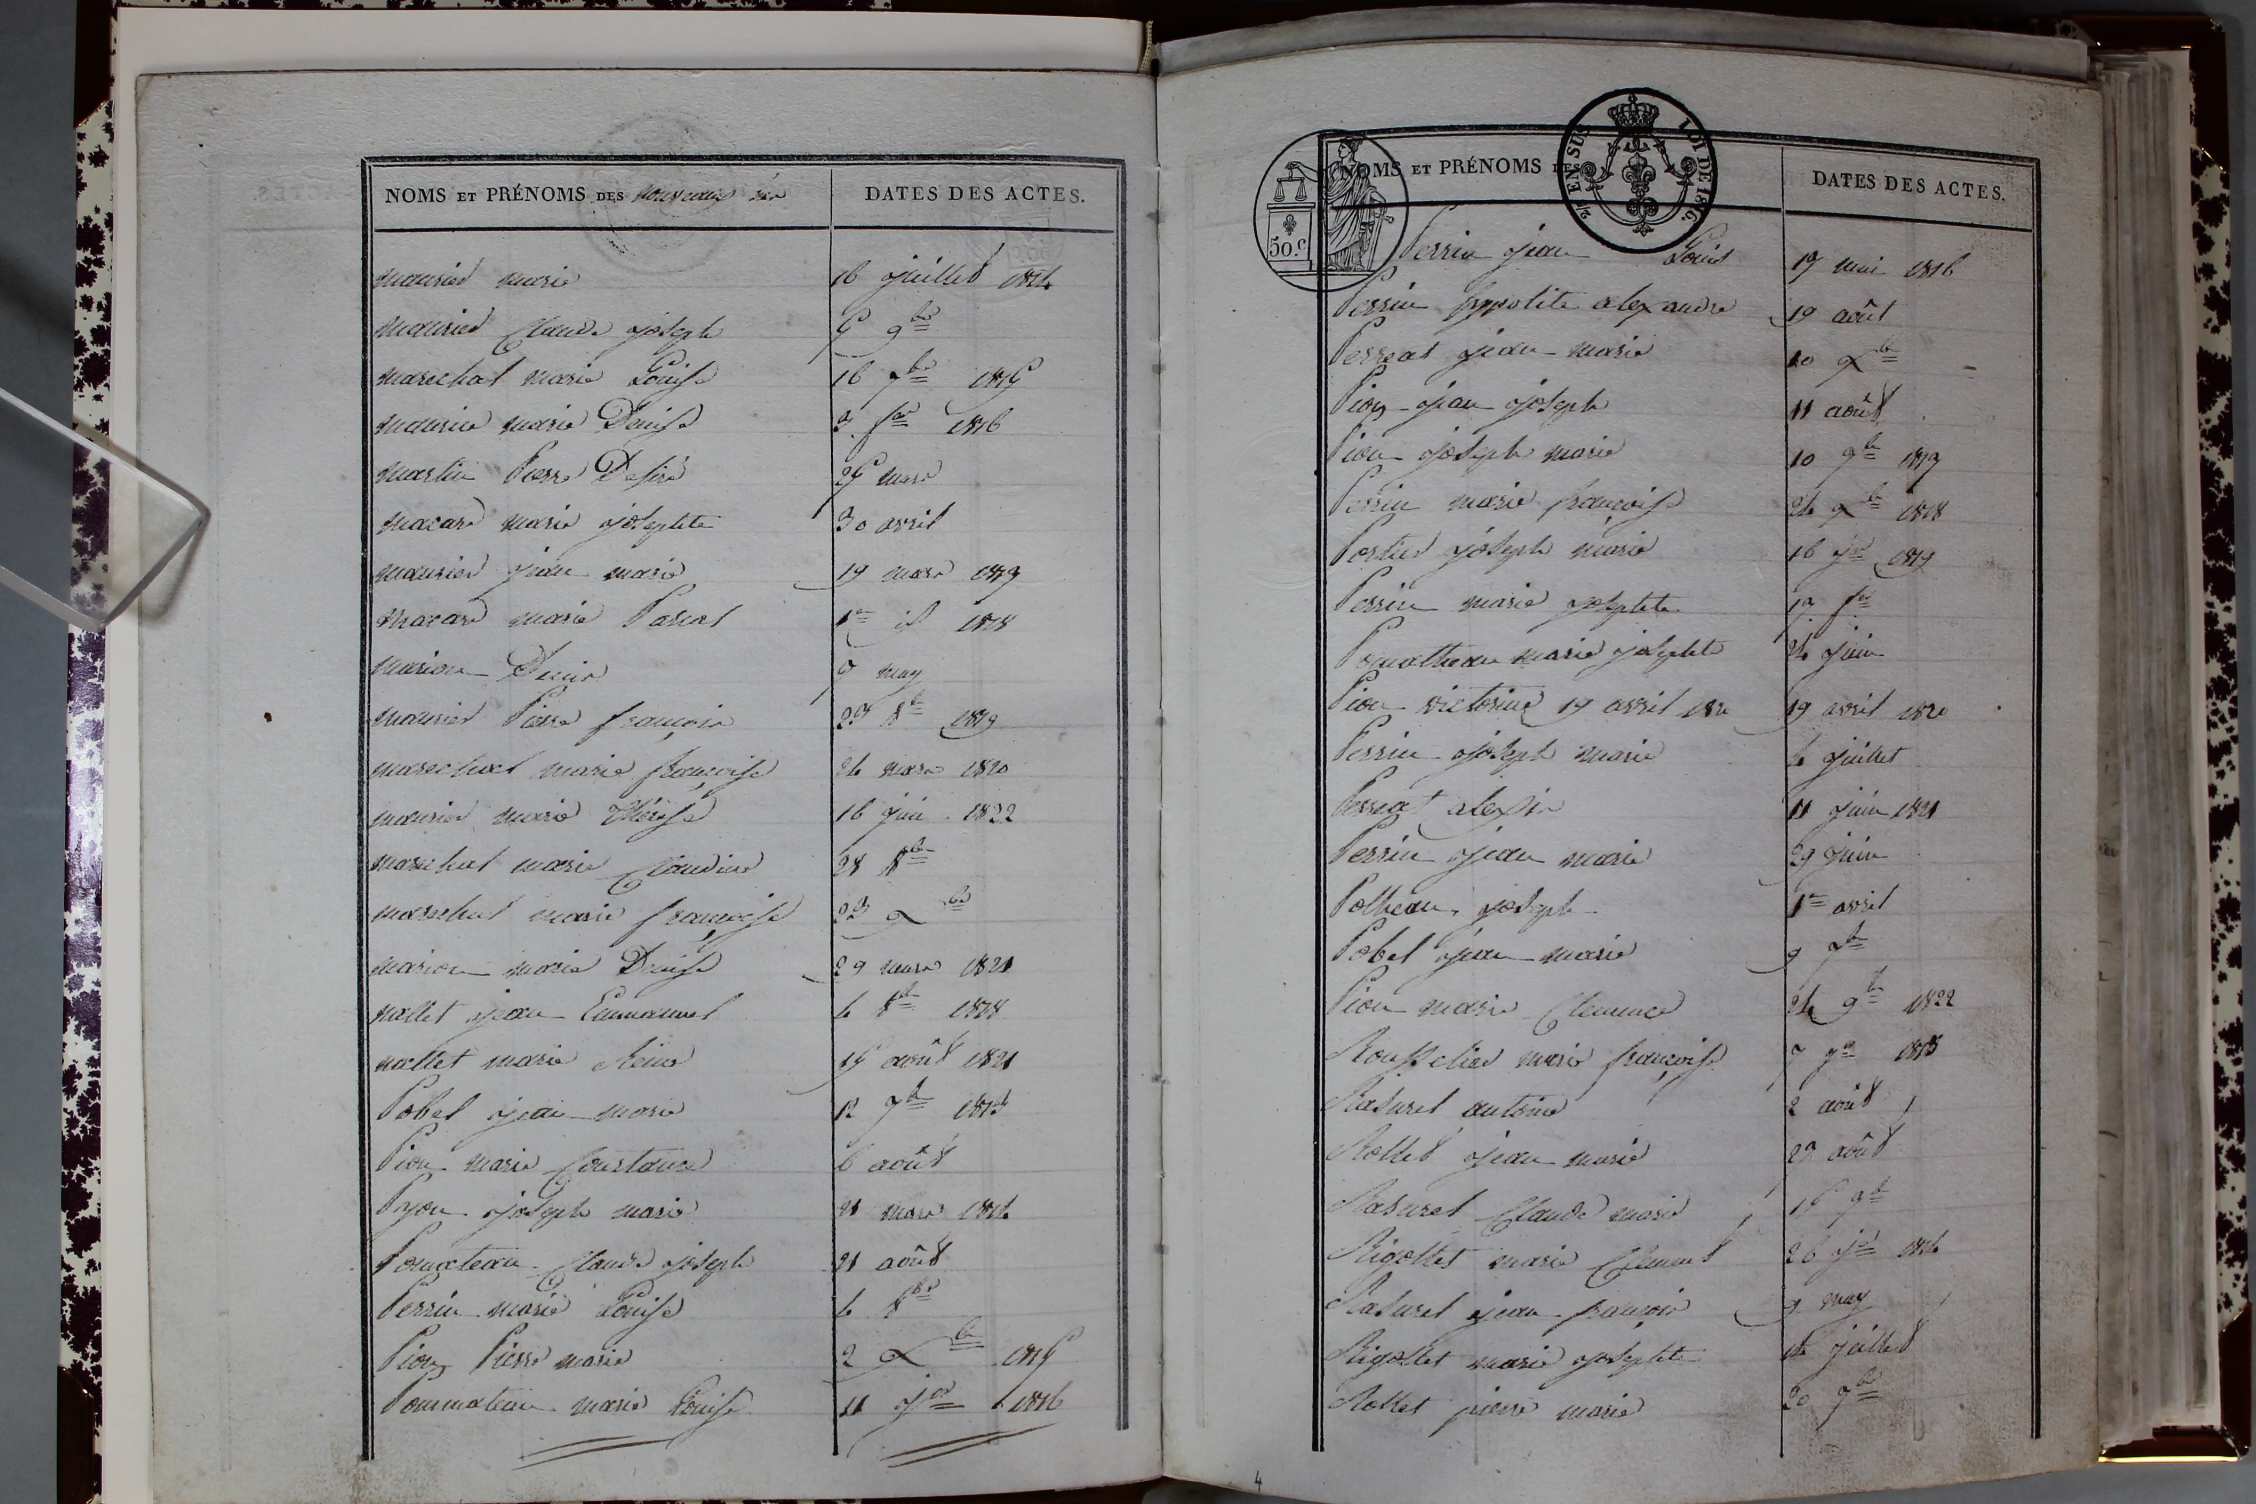 NOMS ET PRÉNOMS DES nouveaux nés DATES DES ACTES.
maurier marie 16 juillet 1814
maurier Claude joseph 5 9bre
marechal marie Louise 16 7bre 1815
maurier marie Denise 3 fer 1816
martin Pierre Desiré 25 mars
macard marie josephte 30 avril
maurier jean marie 19 mars 1817
macard marie Pascal 1er id 1818
marion Denis may
maurier Pierre françois 8bre 1819
marechal marie françoise 24 mars 1820
maurier marie Thérese 16 juin 1822
marechal marie Claudine 28 8bre
marechal marie françoise 23 Xbre
marion marie Denise 29 mars 1821
mallet jean Emmanuel 4 8bre 1818
mallet marie Reine 15 août 1821
Pobel jean marie 12 7bre 1813
Pion marie Constance 6 août
Pyon joseph marie 21 mars 1814
Pomateau Claude joseph 21 août
Perrin marie Louise 4 8bre
Pion Pierre marie 2 Xbre 1815
Pommateau marie Louise 11 jer 1816
NOMS ET PRÉNOMS DES DATES DES ACTES.
50.C
EN SUS LOI DE 1816.
Perrin jean Louis 17 mai 1816
Perrin hyppolite alexandre 19 août
Perreat jean marie 10 Xbre
Pion jean joseph 11 août
Pion joseph marie 10 9bre 1817
Perrin marie françoise 24 Xbre 1818
Portier joseph marie 16 jer 1819
Perrin marie josephte 17 fer
Pomatheau marie josephte 24 juin
Pion victorine 19 avril 1820 19 avril 1820
Perrin joseph marie 4 juillet
Perreat alexis 11 juin 1821
Perrin jean marie 29 juin
Potheau joseph 1er avril
Pobel jean marie 9 7bre
Pion marie Clemence 24 9bre 1822
Rousselier marie françoise 7 1813
Rasurel antoine 2 août
Rollet jean marie 23 août
Rasurel Claude marie 15 9bre
Rigollet marie Clement 26 jer 1814
Rasurel jean françois 9 may
Rigollet marie josephte 14 juillet
Rollet pierre marie 20 7bre
4